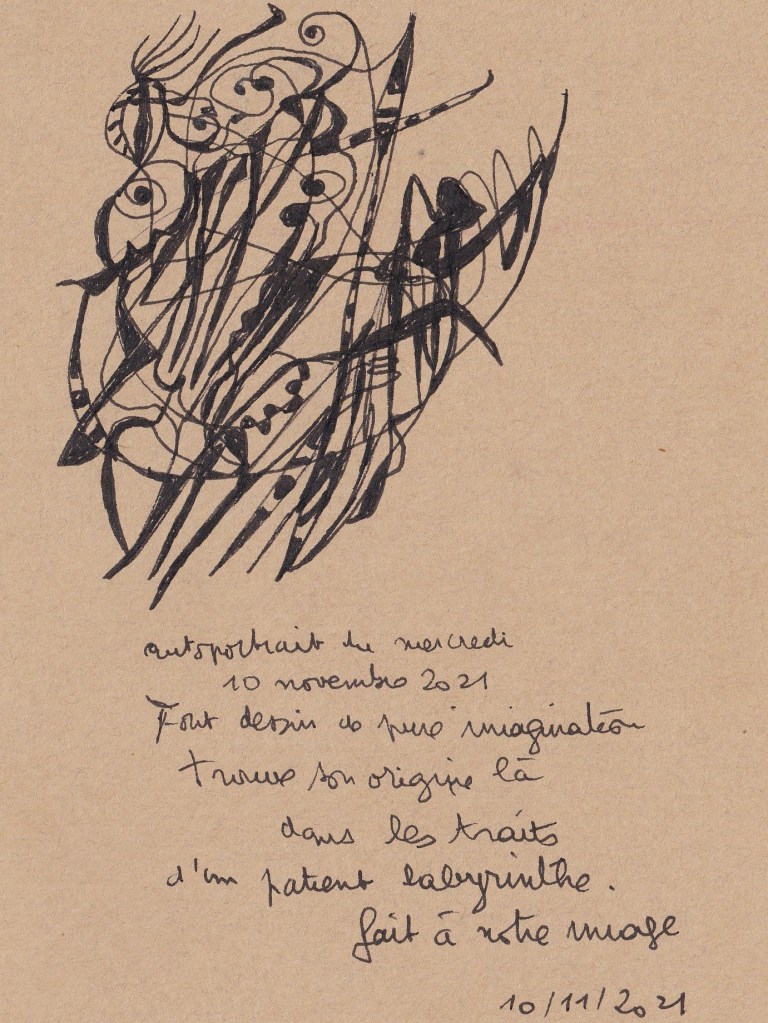 autoportrait du mercredi
10 novembre 2021
Tout dessin de pure imagination
trouve son origine là
dans les traits
d'un patient labyrinthe.
fait à notre image
10/11/2021